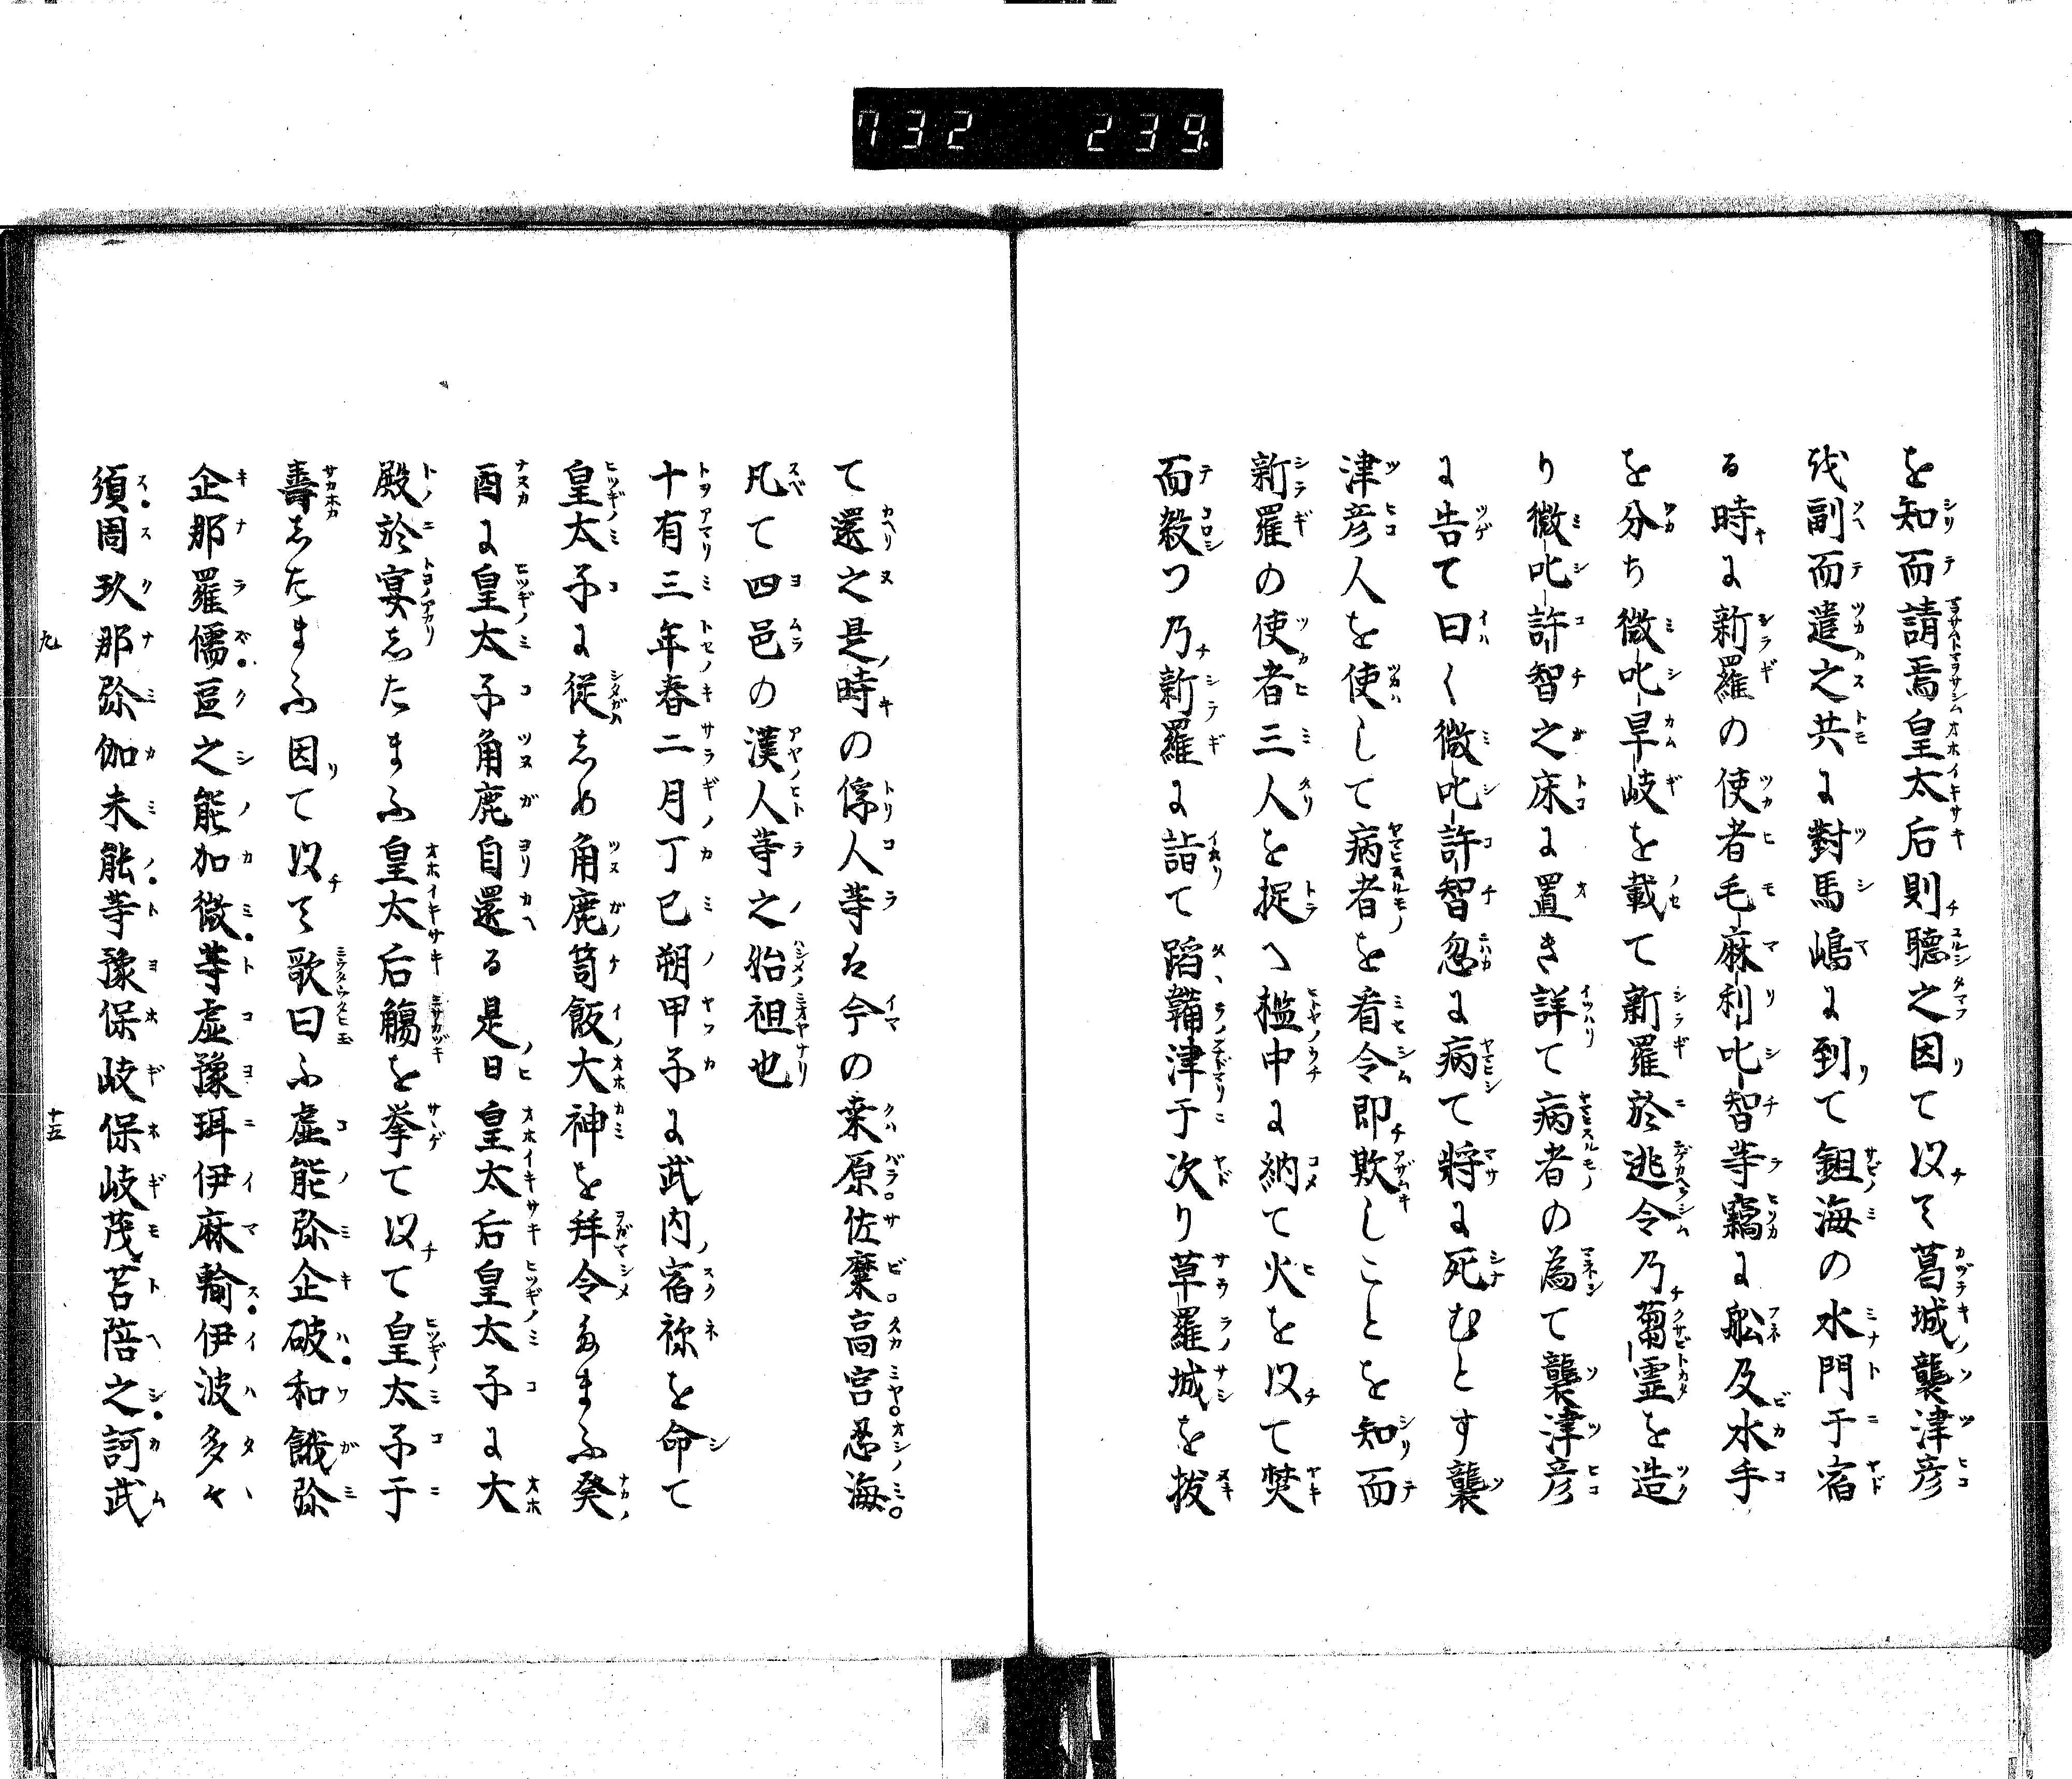 732 239.
を知而請焉皇太后則聴之因て以て葛城襲津彦
を副而遣之共に對馬嶋に到りて鉏海の水門于宿
る時に新羅の使者毛麻利叱智等竊に舩及水手
を分ち微叱旱岐を載て新羅於逃令乃蒭霊を造
り微叱許智之床に置き詳て病者の為て襲津彦
に告て曰く微叱許智忽に病て將に死むとす襲
津彦人を使して病者を看令即欺しことを知而
新羅の使者三人を捉へ檻中に納て火を以て焚
而殺つ乃新羅に詣て蹈鞴津于次り草羅城を抜
て還之是時の俘人等は今の桒原佐糜高宮忍海
凡て四邑の漢人等之始祖也
十有三年春二月丁巳朔甲子に武内宿祢を命て
皇太子に従しめ角鹿笥飯大神を拜令たまふ癸
酉に皇太子角鹿自還る是日皇太后皇太子に大
殿於宴したまふ皇太后觴を挙て以て皇太子于
壽したまふ因りて以て歌曰ふ虚能弥企破和餓弥
企那羅儒豆之能加微等虚豫珥伊麻輸伊波多々
須周玖那弥伽未能等豫保岐保岐茂苫陪之訶武
九 十五